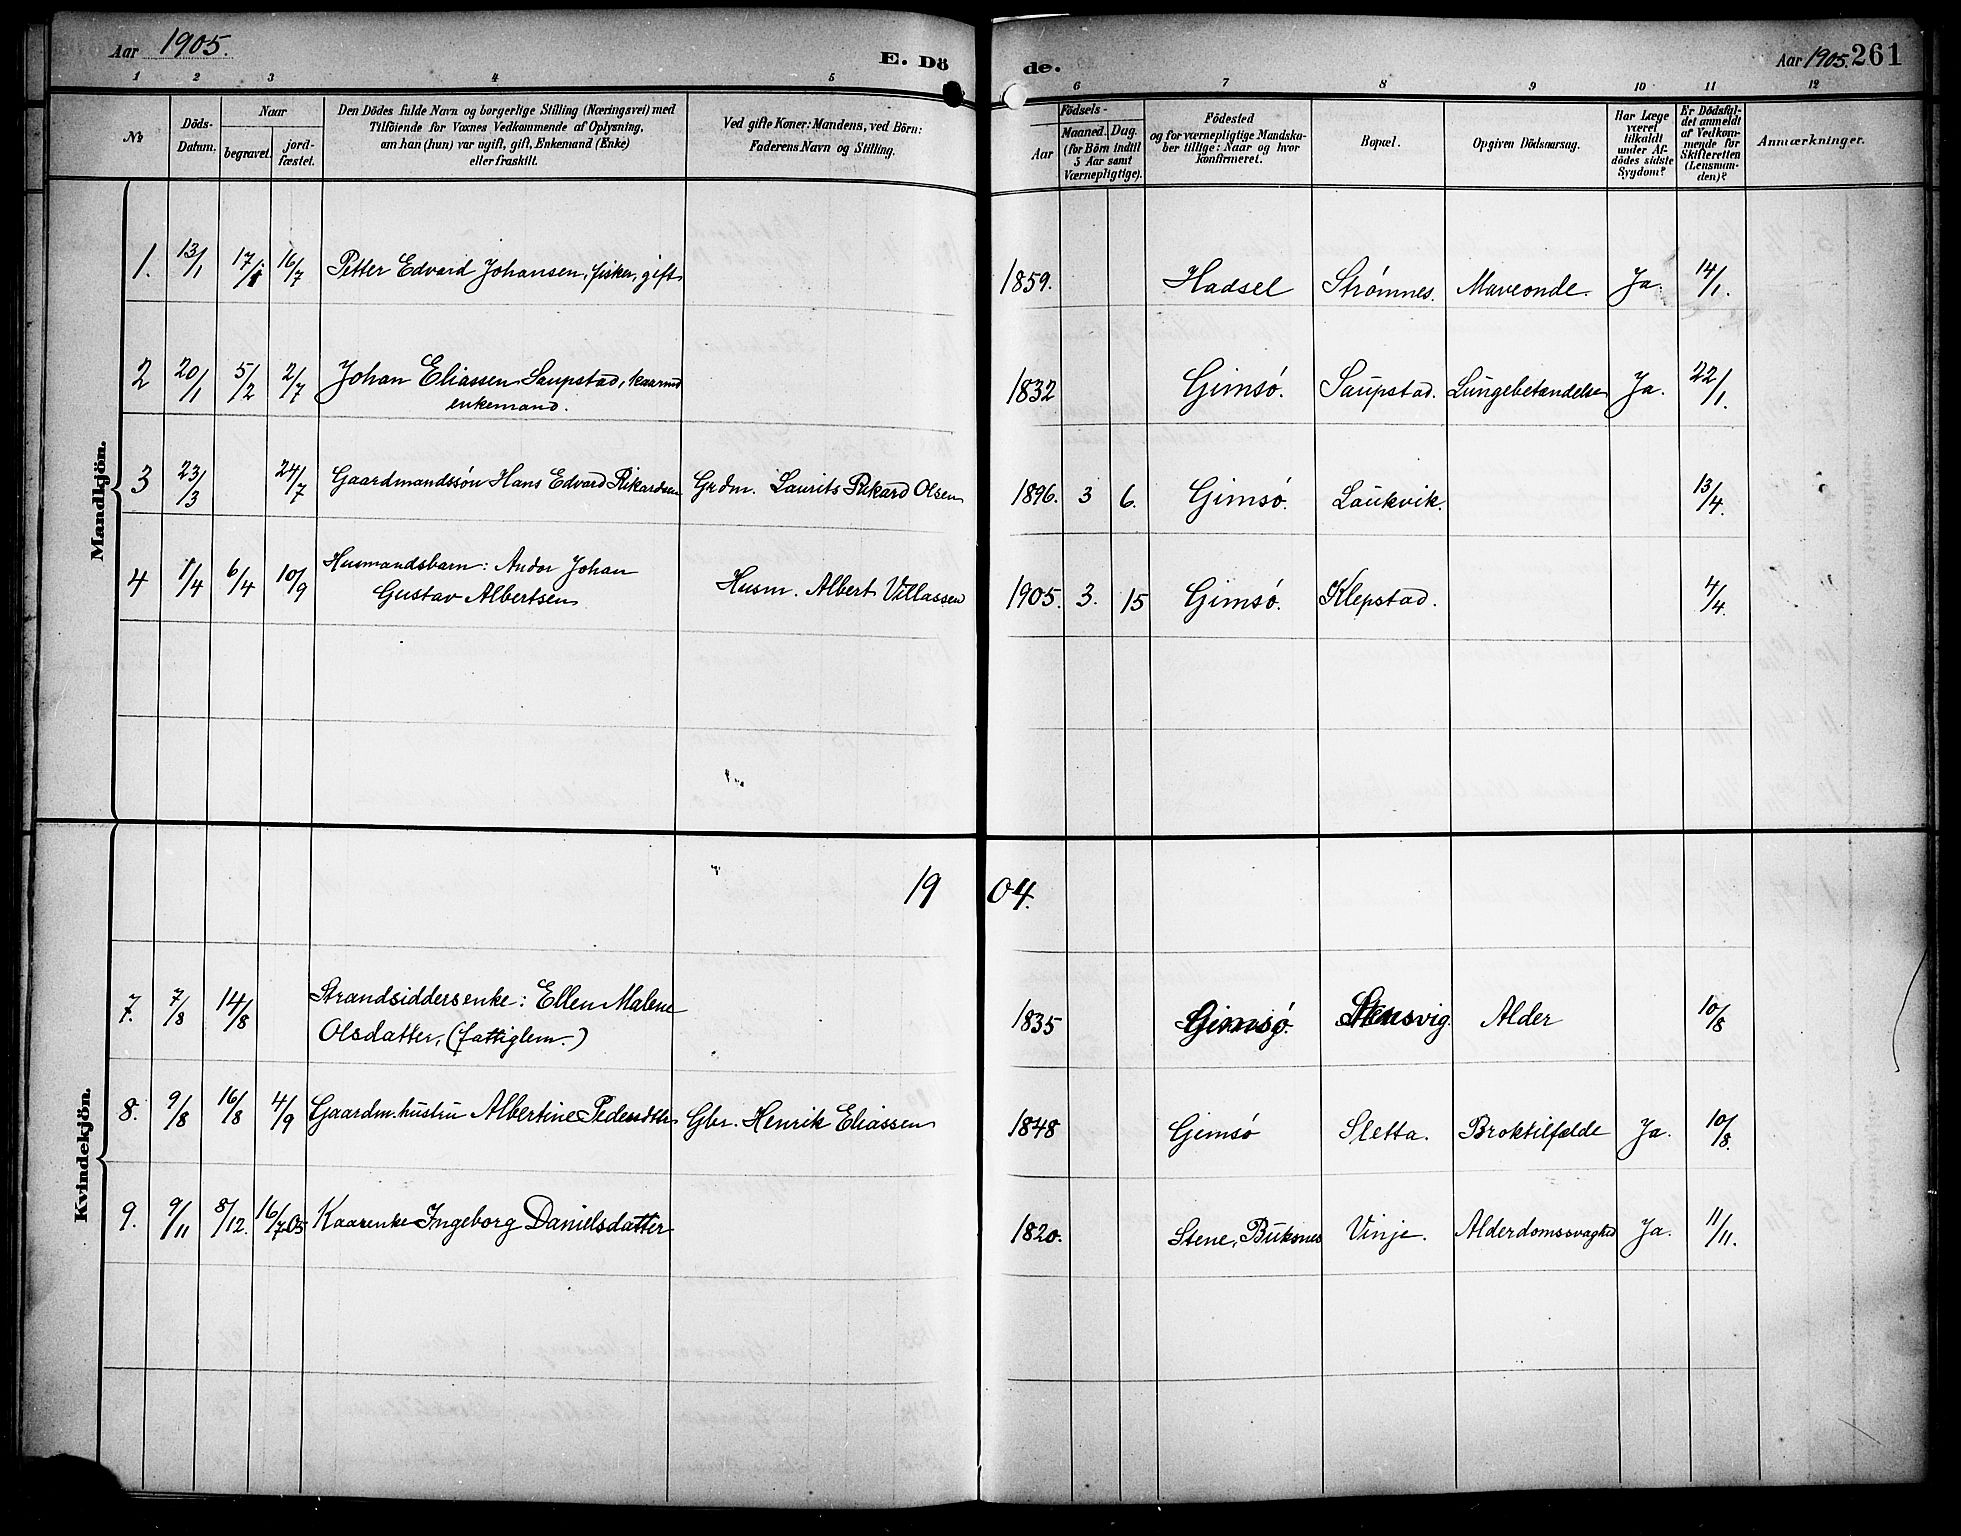 Aar 1905. E. Dö de. Aar 1905. 261
1 2 3 4 5 6 7 8 9 10 11 12
No
Döds-
Datum.
Naar
begravet.
jord-
fæstet.
Den Dödes fulde Navn og borgerlige Stilling (Næringsvei) med
Tilföiende for Voxnes Vedkommende af Oplysning,
om han (hun) var ugift, gift, Enkemand (Enke)
eller fraskilt.
Ved gifte Koner: Mandens, ved Börn:
Faderens Navn og Stilling.
Födsels-
Aar
Maaned. Dag.
(for Börn indtil
5 Aar samt
Værnepligtige).
Födested
og for værnepligtige Mandska-
ber tillige: Naar og hvor
konfirmeret.
Bopæl.
Opgiven Dödsaarsag.
Har Læge
været
tilkaldt
under Af-
dödes sidste
Sygdom?
Er Dödsfal-
det anmeldt
af Vedkom-
mende for
Skifteretten
(Lensman-
den)?
Anmærkninger.
Mandkjön.
1. 13/1 17/1 16/7 Petter Edvard Johansen, fisker, gift 1859. Hadsel Strømnes. Maveonde. Ja. 14/1.
2 20/1 5/2 2/7 Johan Eliassen Saupstad, kaarmd
enkemand. 1832 Gimsö. Saupstad. Lungebetændelse Ja. 22/1.
3 23/3 24/7 Gaardmandssön Hans Edvard Rikardsen Grdm. Laurits Rikard Olsen 1896. 3 6. Gimsö. Laukvik. 13/4.
4 1/4 6/4 10/9 Husmandsbarn: Andor Johan
Gustav Albertsen Husm. Albert Villassen 1905. 3. 15 Gimsö. Klepstad. 4/4.
Kvindekjön.
19 04.
7. 7/8 14/8 Strandsiddersenke: Ellen Malene
Olsdatter, (fattiglem.) 1835 Gimsö. Stensvig. Alder 10/8
8. 9/8 16/8 4/9 Gaardm.hustru Albertine Pedersdtr Gbr. Henrik Eliassen 1848 Gimsö Sletta. Broktilfælde Ja. 10/8.
9. 9/11 8/12. 16/7 05 Kaarenke Ingeborg Danielsdatter 1820. Stene, Buksnes Vinje. Alderdomssvaghed Ja. 11/11.